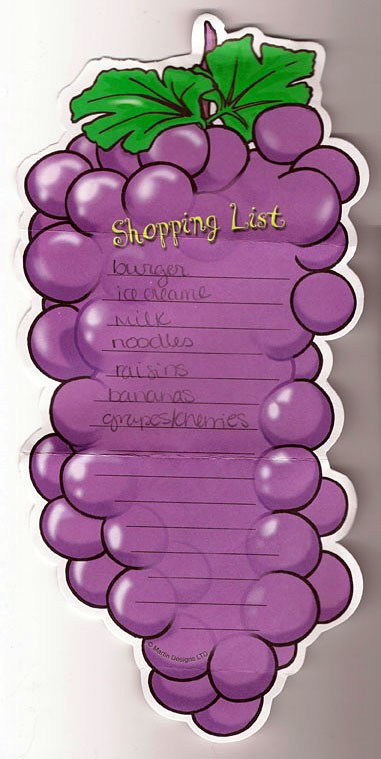 Shopping List
burger
ice creame
Milk
noodles
raisins
bananas
grapes/cherries
© Martin Designs LTD